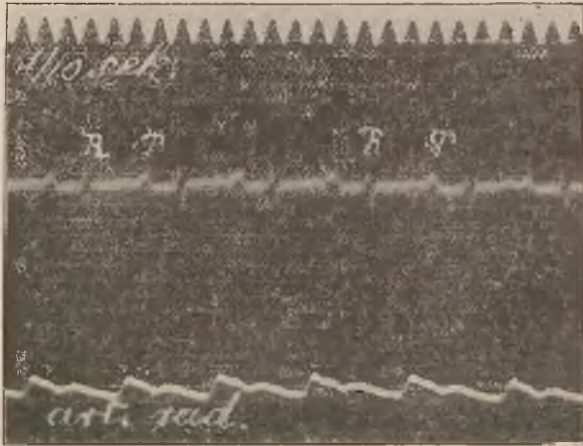 1/10 sek.
R T R T
art. rad.